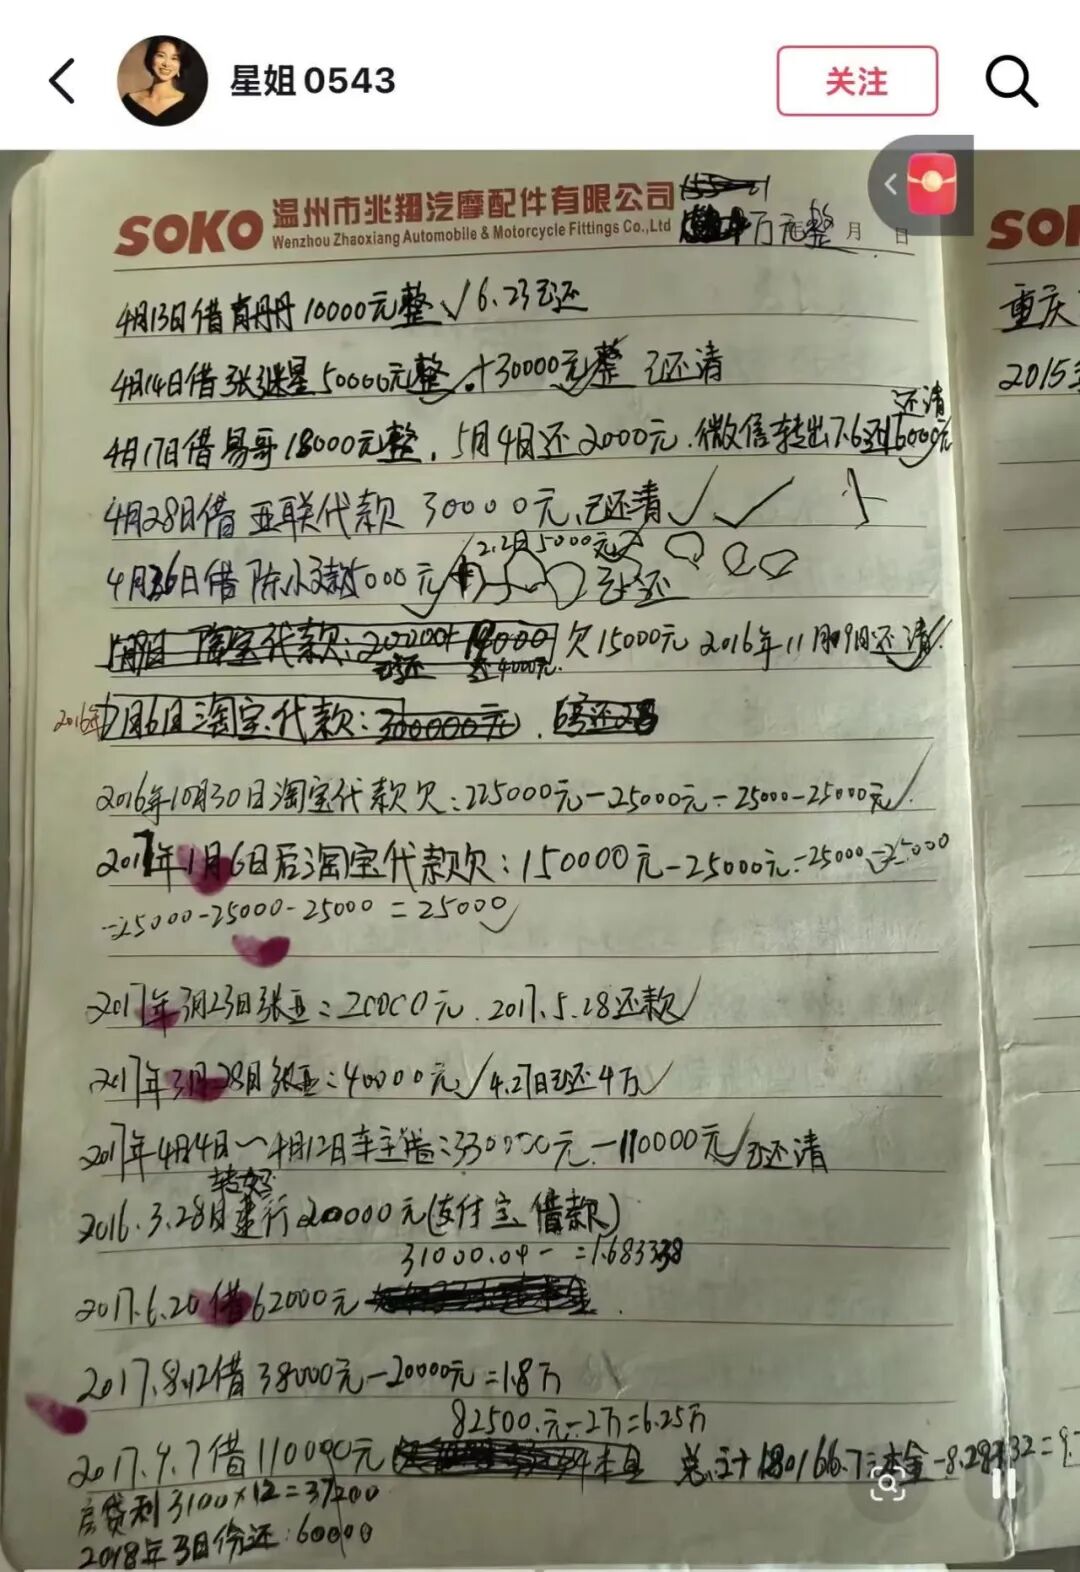 星姐0543
关注
SOKO 温州市兆翔汽摩配件有限公司
Wenzhou Zhaoxiang Automobile & Motorcycle Fittings Co.,Ltd
万元整 月 日
SOK
4月13日借 10000元整√6.23已还
重庆
4月14日借张继星50000元整.+30000元整 已还清
2015
还清
4月17日借易哥18000元整,5月4日还2000元.微信转出7.6还16000元
4月28日借亚联代款 30000元、已还清√√
2.2日5000元
4月26日借陈小 5000元 已还
淘宝代款: 欠15000元 2016年11月09日还清
已还 还4000元
2016年7月6日淘宝代款:300000元.
2016年10月30日淘宝代款欠:225000元-25000元-25000-25000元√
2017年1月6日后淘宝代款欠:150000元-25000元-25000-25000
-25000-25000-25000=25000√
2017年3月23日张亚:20000元.2017.5.28还款√
2017年3月28日张亚:40000元√4.27日已还4万√
2017年4月4日~4月12日车主借:330000元-110000元√已还清
2016.3.28日建行200000元(支付宝借款)
31000.04-
2017.6.20借62000元
2017.8.12借38000元-20000元=1.8万
82500.元-2万=6.25万
2017.9.7借110000元 本息 总计180166.7
房贷利3100×12=37200
2018年3月份还:60000